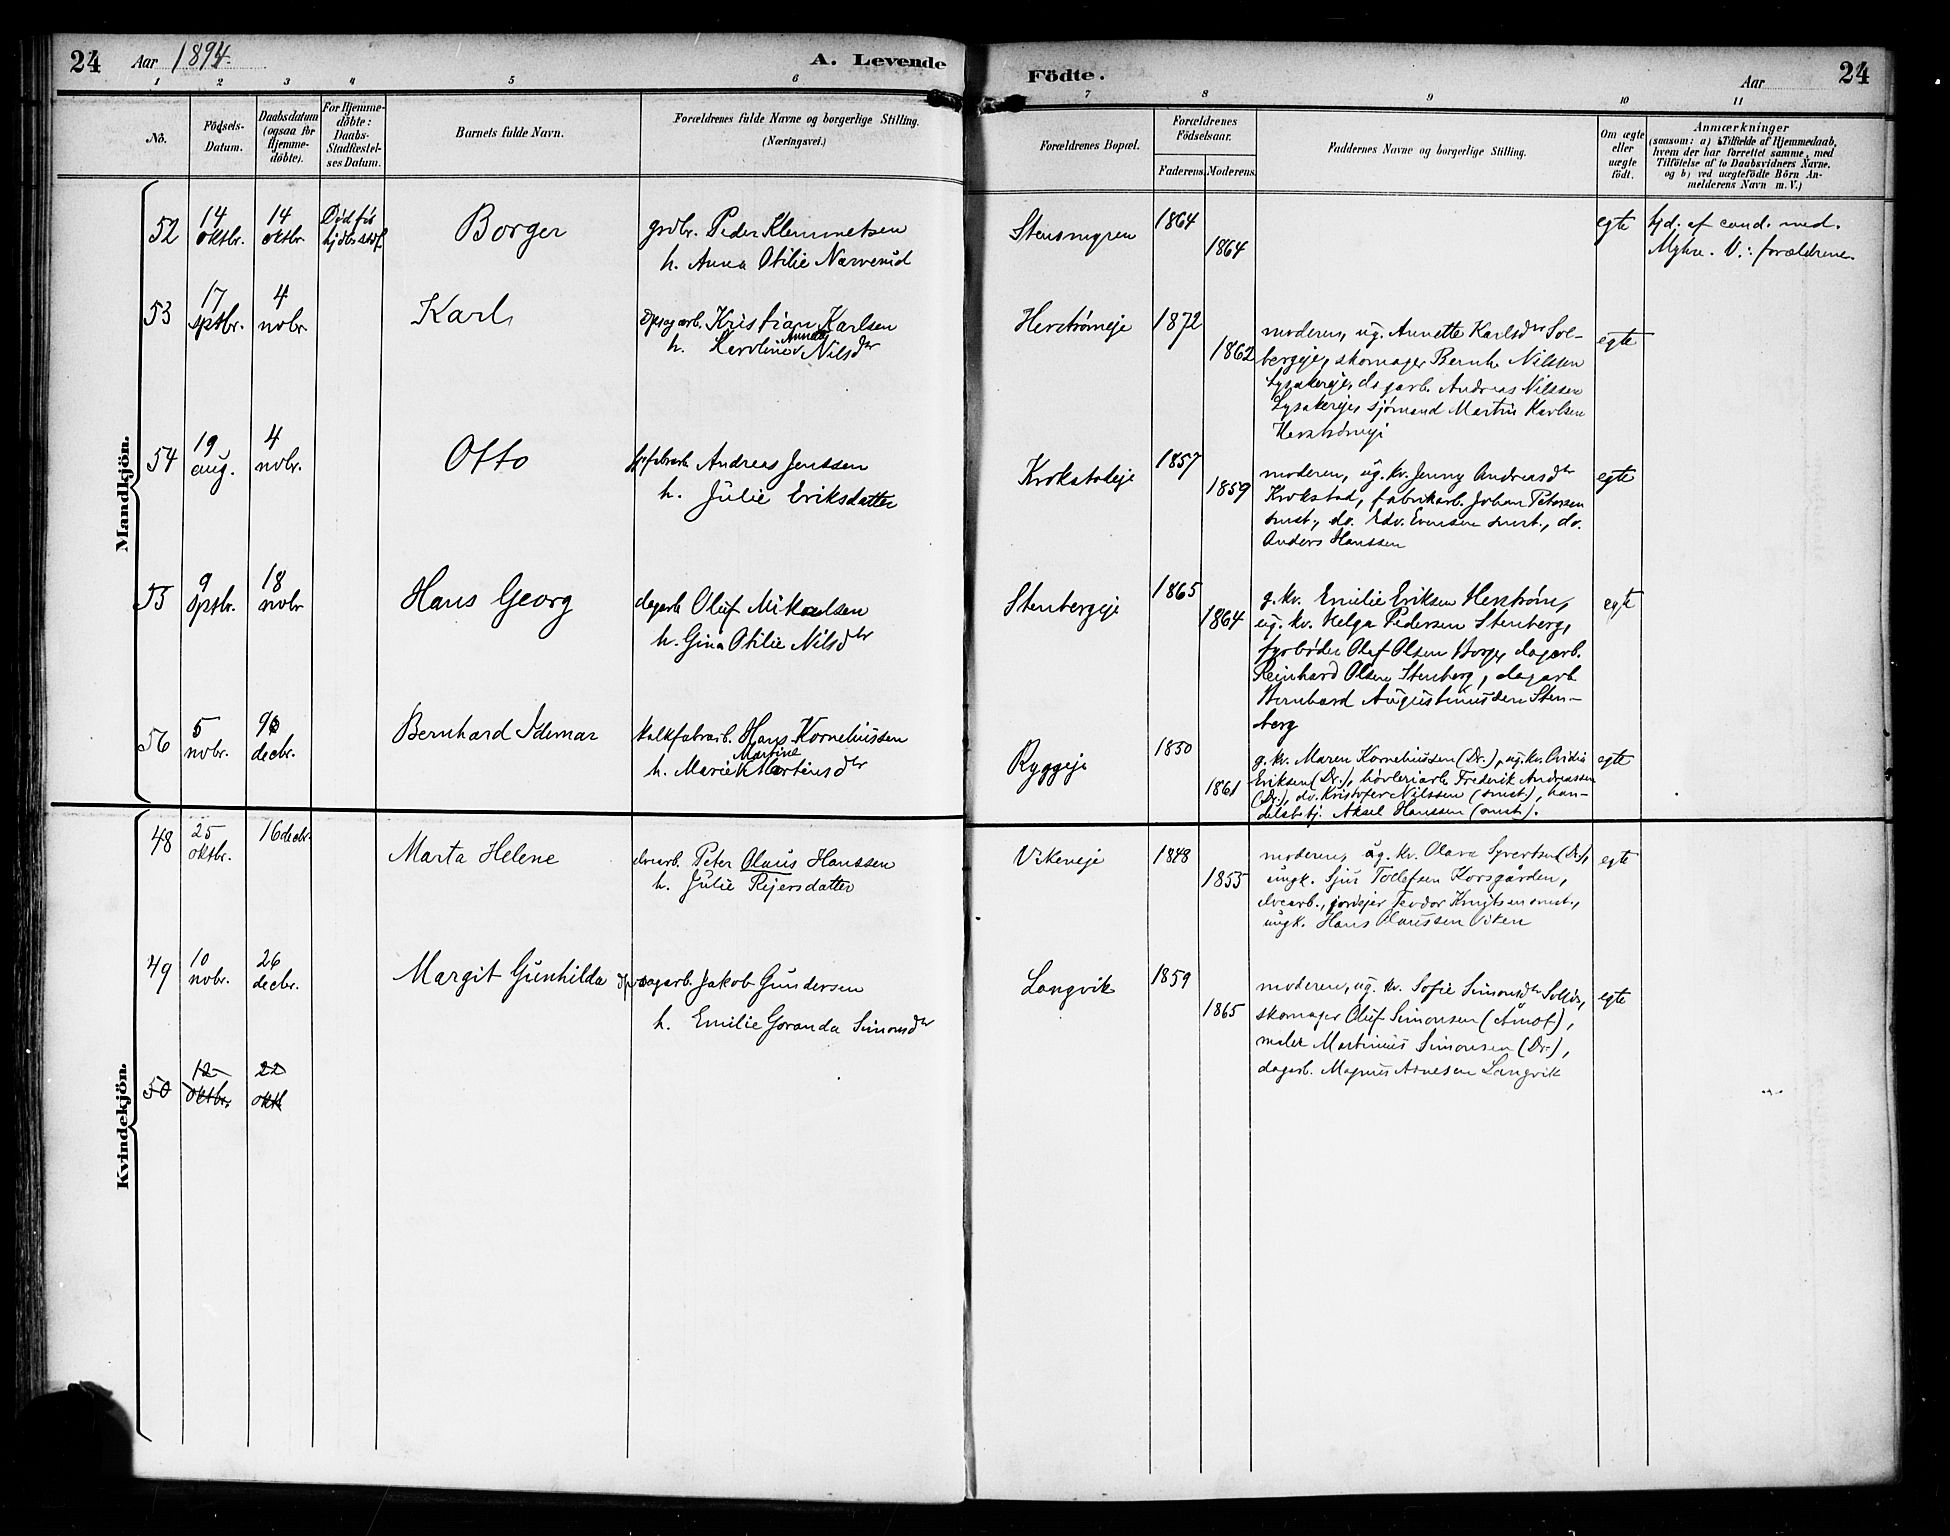 24
Aar 1894.
A. Levende
Födte.
Aar
24
1 2 3 4 5 6 7 8 9 10 11
No.
Födsels-
Datum.
Daabsdatum
(ogsaa for
Hjemme-
döbte).
For Hjemme-
döbte:
Daabs-
Stadfæstel-
ses Datum.
Barnets fulde Navn.
Forældrenes fulde Navne og borgerlige Stilling.
(Næringsvei.)
Forældrenes Bopæl.
Forældrenes
Födselsaar.
Faderens. Moderens.
Faddernes Navne og borgerlige Stilling.
Om ægte
eller
uægte
födt.
Anmærkninger
(saasom: a) i Tilfælde af Hjemmedaab,
hvem der har forrettet samme, med
Tilföielse af to Daabsvidners Navne,
og b) ved uægtefödte Börn An-
melderens Navn m. V.)
Mandkjön.
52
14
oktbr.
14
oktbr.
Död før
Borger
grdbr. Peder Klemmetsen
h. Anna Otilie Narverud
Stensmyren
1864
1864
egte
hjd. af cand. med.
Myhre. V.: forældrene.
53
17
sptbr.
4
novbr.
Karl
Kristian Karlsen
Anna
h. Karoline Nilsdtr
1872
1862
moderen, ug. Annette Karlsdtr Sol-
bergeje, skomager Bernh. Nilssen
Lysakereje, dagarb. Andreas Nilssen
Lysakereje, sjømand Martin Karlsen
54
19
aug.
4
novbr.
Otto
Andreas Jenssen
h. Julie Eriksdatter
Krokstadeje
1857
1859
moderen, ug. kv. Jenny Andreasdtr
Krokstad, fabrikarb. Johan Petersen
smst., do. Edv. Evensen smst., do.
Anders Hanssen
egte
55
9
sptbr.
18
novbr
Hans Georg
dagarb Oluf Mikaelsen
h. Gina Otilie Nilsdtr
Stenbergeje
1865
1864
g. kv. Emilie Eriksen Herstrøm,
ug. kv. Helga Pedersen Stenberg,
fyrbøder Olaf Olsen Horge, dagarb.
Reinhard Olsen Stenberg, dagarb
Bernhard Augustinussen Sten-
berg
egte
56
5
novbr.
9
decbr.
Bernhard Idemar
Hans Korneliussen
Martine
h. Marie Martinsdtr
Ryggeje
1850
1861
g. kv. Maren Korneliussen (Dr.), ug. kv. Ovidia
Eriksen (Dr.), høvleriarb Frederik Andreassen
(Dr.), do. Kristofer Nilssen (smst), han-
delsbetj. Aksel Hanssen (smst).
egte
Kvindekjön.
48
25
oktbr.
16 decbr.
Marta Helene
elvearb. Peter Olaus Hanssen
h. Julie Rejersdatter
Vikeneje
1848
1855
moderen, ug. kv. Olava Syvertsen (Dr.),
ungk. Sjur Tollefsen Korsgården,
elvearb., jordejer Teodor Knutssen smst.,
ungk. Hans Olaussen Viken
egte
49
10
novbr.
26
decbr.
Margit Gunhilda
dagarb. Jakob Gundersen
h. Emilie Goranda Simonsdtr
Langvik
1859
1865
moderen, ug. kv. Sofie Simonsdtr
skomager Oluf Simonsen (Åmot),
maler Martinius Simonsen (Dr.),
dagarb. Magnus Arnesen Langvik
egte
50
12
oktbr.
22
oktb